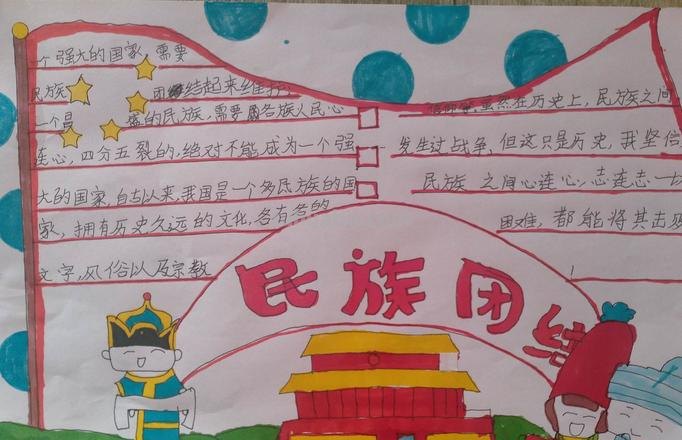 个强大的国家,需要
民族 团结起来维护,
一个昌盛的民族,需要各族人民心
连心,四分五裂的,绝对不能成为一个强
大的国家,自古以来,我国是一个多民族的国
家,拥有历史久远的文化,各有各的
文字,风俗以及宗教
虽然在历史上,民族之间
发生过战争,但这只是历史,我坚信
民族之间心连心,志连志一切
困难,都能将其击败
民族团结